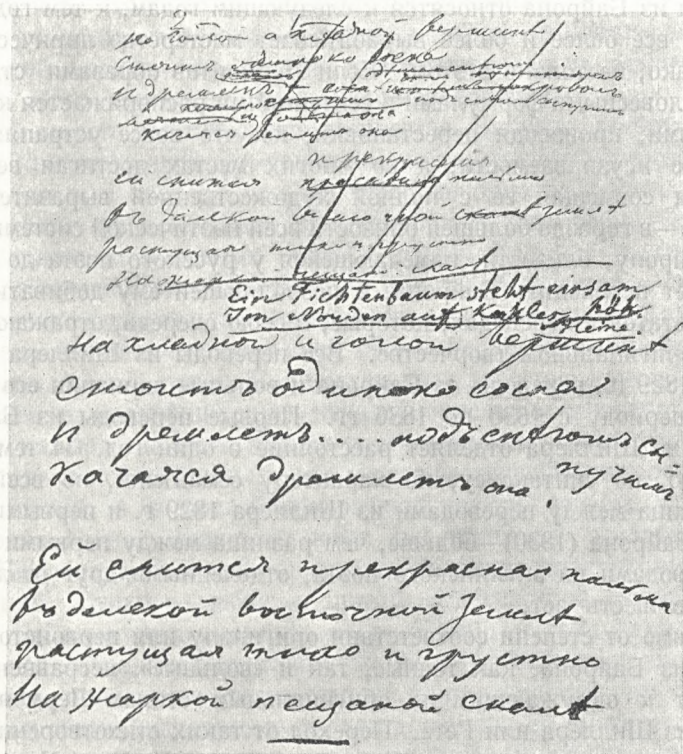 на голой и хладной вершинѣ
стоитъ одиноко сосна
и дремлетъ
дремлетъ она
прекрасная
ей снится пальма
въ далекой восточной землѣ
растущая тихо и грустно
на жаркой пещаной скалѣ
Ein Fichtenbaum steht einsam
Im Norden auf kahler Höh.
Heine.
На хладной и голой вершинѣ
Стоитъ одиноко сосна
И дремлетъ... подъ снѣгомъ сы-
пучимъ
Качаяся дремлетъ она.
Ей снится прекрасная пальма
въ далекой восточной землѣ
растущая тихо и грустно
На жаркой пещаной скалѣ